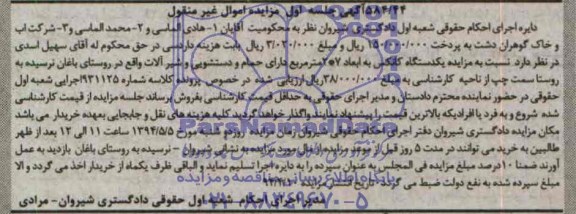 ۵۸۴/۲۴ آگهی جلسه اول مزایده اموال غیر منقول
دایره اجرای احکام حقوقی شعبه اول دادگستری شیروان نظر به محکومیت آقایان ۱-هادی الماسی و ۲-محمد الماسی و ۳-شرکت آب
و خاک گوهران دشت به پرداخت ۱۵۰/۰۰۰/۰۰۰ ریال و مبلغ ۳/۰۲۰/۰۰۰ ریال بابت هزینه دادرسی در حق محکوم له آقای سهیل اسدی
در نظر دارد نسبت به مزایده یکدستگاه کانکس به ابعاد ۷*۲ مترمربع دارای حمام و دستشویی و شیر آلات واقع در روستای باغان نرسیده به
روستا سمت چپ از ناحیه کارشناسی به مبلغ ۳۸/۰۰۰/۰۰۰ ریال ارزیابی شده در خصوص پرونده کلاسه شماره ۹۳۱۱۲۵ اجرایی شعبه اول
حقوقی در حضور نماینده محترم دادستان و مدیر اجرای حقوقی به حداقل قیمت کارشناسی بفروش برساند جلسه مزایده از قیمت کارشناسی
شده شروع و به فرد یا افرادیکه بالاترین قیمت را پیشنهاد نمایند واگذار خواهد گردید کلیه هزینه های نقل و جابجایی بعهده خریدار می باشد
مکان مزایده دادگستری شیروان دفتر اجرای احکام حقوقی شیروان زمان مزایده روز شنبه مورخ ۱۳۹۴/۵/۵ ساعت ۱۱ الی ۱۲ بعد از ظهر
طالبین به خرید می توانند در مدت ۵ روز قبل از مزایده از مال مورد مزایده به نشانی شیروان - نرسیده به روستای باغان بازدید به عمل
آورند ضمنا ۱۰ درصد مبلغ مزایده فی المجلس به عنوان سپرده را به دایره اجرا تسلیم نماید و الباقی ظرف یکماه از خریدار اخذ می گردد والا
مبلغ سپرده شده به نفع دولت ضبط می گردد تاریخ انتشار
مدیر اجرای احکام شعبه اول حقوقی دادگستری شیروان- مرادی